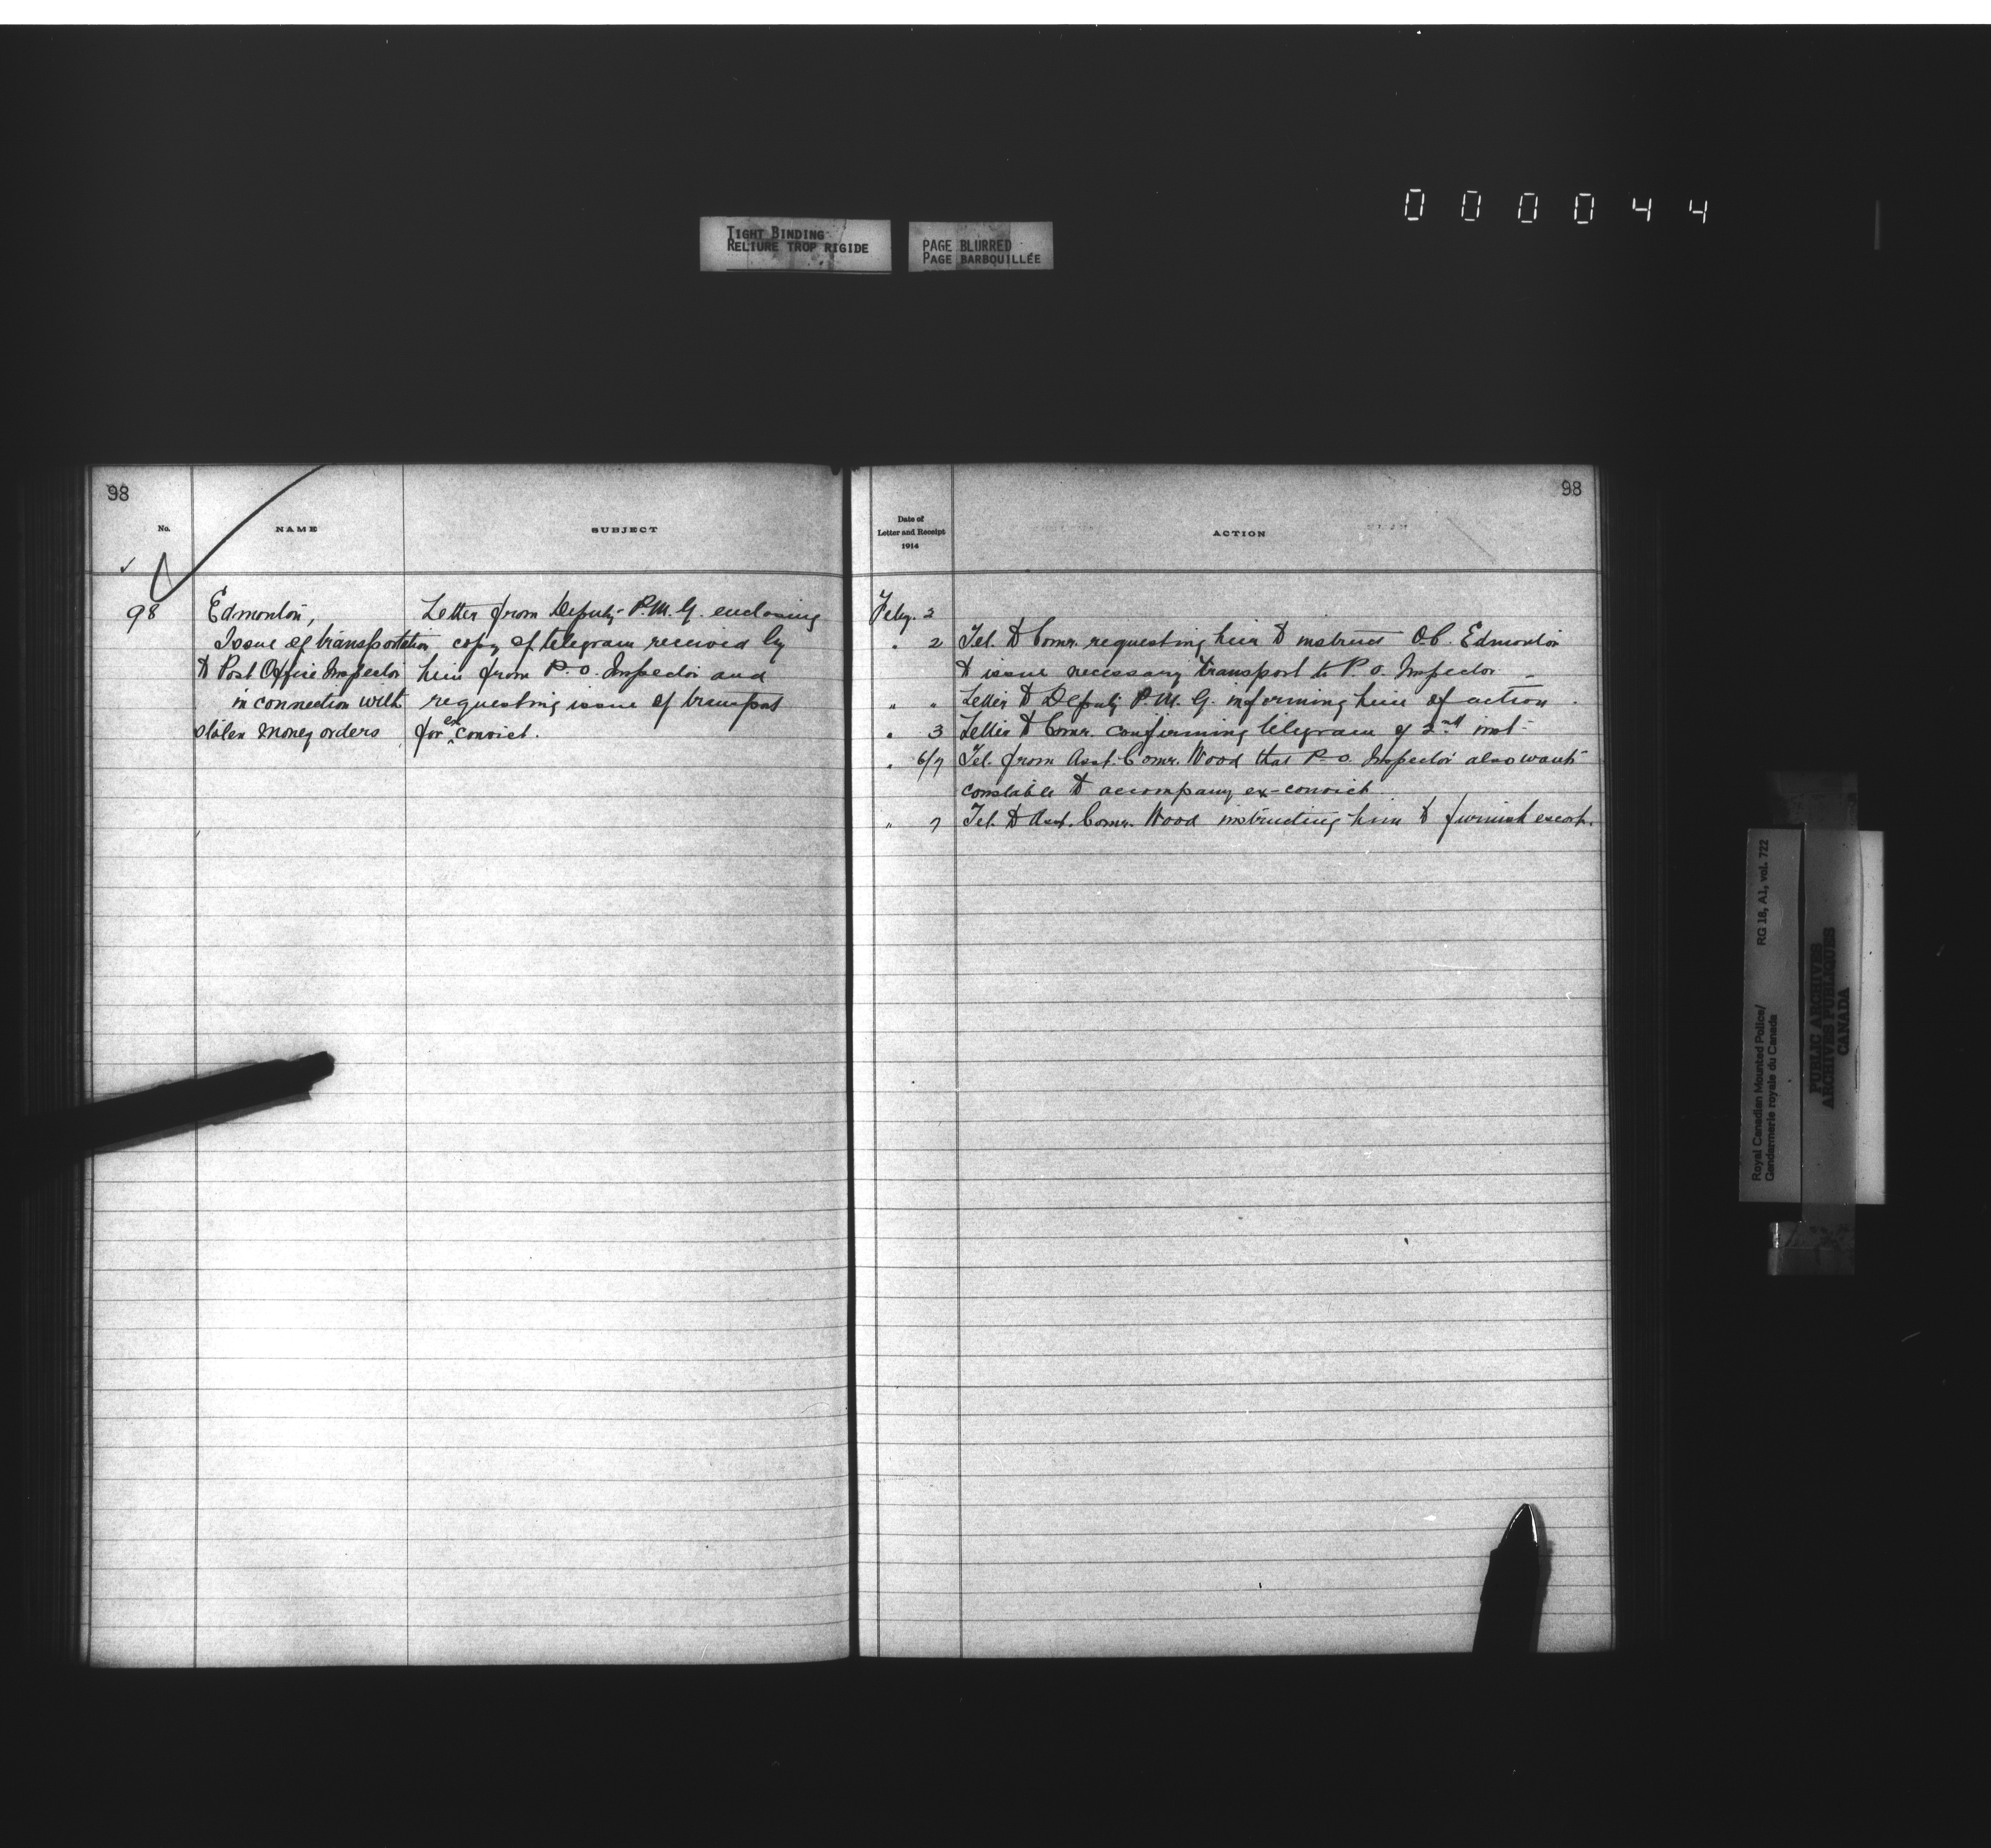 000044
TIGHT BINDING
RELIURE TROP RIGIDE
PAGE BLURRED
PAGE BARBOUILLÉE
98
No.
NAME
SUBJECT
98
Edmonton,
Issue of transportation
to Post Office Inspector
in connection with
stolen money orders
Letter from Deputy P.M.G. enclosing
copy of telegram received by
him from P.O. Inspector and
requesting issue of transport
for ex convict.
98
Date of
Letter and Receipt
1914
ACTION
Feby. 2
" 2 Tel. to Comr. requesting him to instruct O.C. Edmonton
to issue necessary transport to P.O. Inspector
" " Letter to Deputy P.M.G. informing him of action.
" 3 Letter to Comr. confirming telegram of 2nd inst.
" 6/7 Tel. from Asst. Comr. Wood that P.O. Inspector also wants
constable to accompany ex-convict.
" 7 Tel. to Asst. Comr. Wood instructing him to furnish escort.
Royal Canadian Mounted Police/
Gendarmerie royale du Canada
RG 18, A1, vol. 722
PUBLIC ARCHIVES
ARCHIVES PUBLIQUES
CANADA